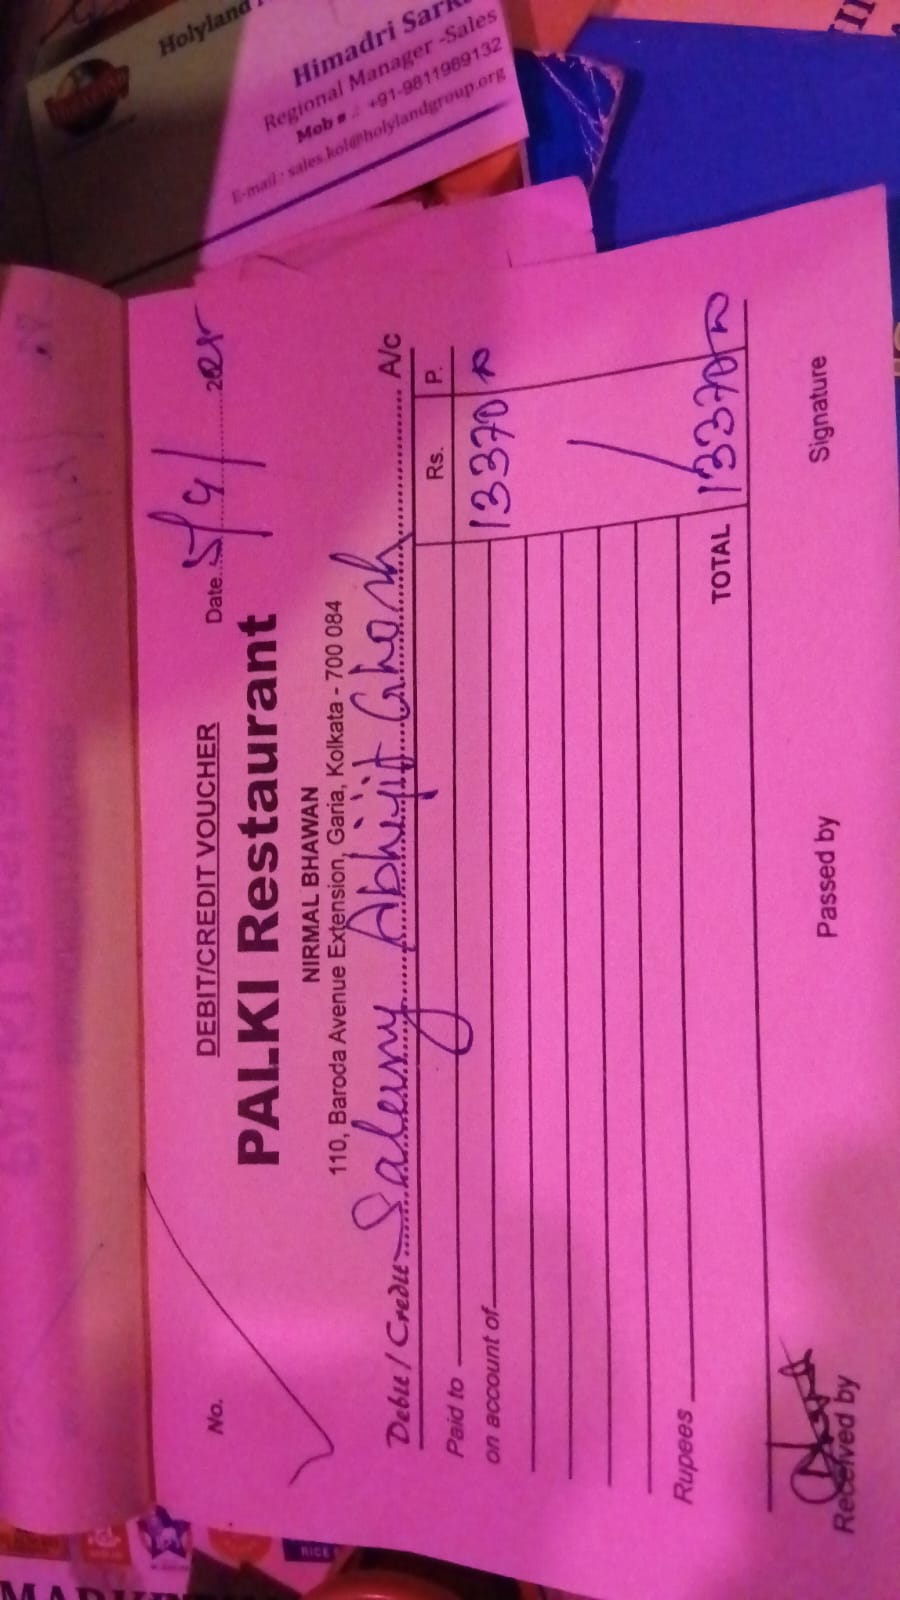 Holyland
Himadri Sark
Regional Manager -Sales
Mob .: +91-9811989132
E-mail : sales.kol@holylandgroup.org
No.
DEBIT/CREDIT VOUCHER
Date 5/9/ 2025
PALKI Restaurant
NIRMAL BHAWAN
110, Baroda Avenue Extension, Garia, Kolkata - 700 084
Debit / Credit Salery Abhijit Ghosh A/c
Rs. P.
Paid to
on account of 13370
Rupees
TOTAL 13370
Received by
Passed by
Signature
RICE